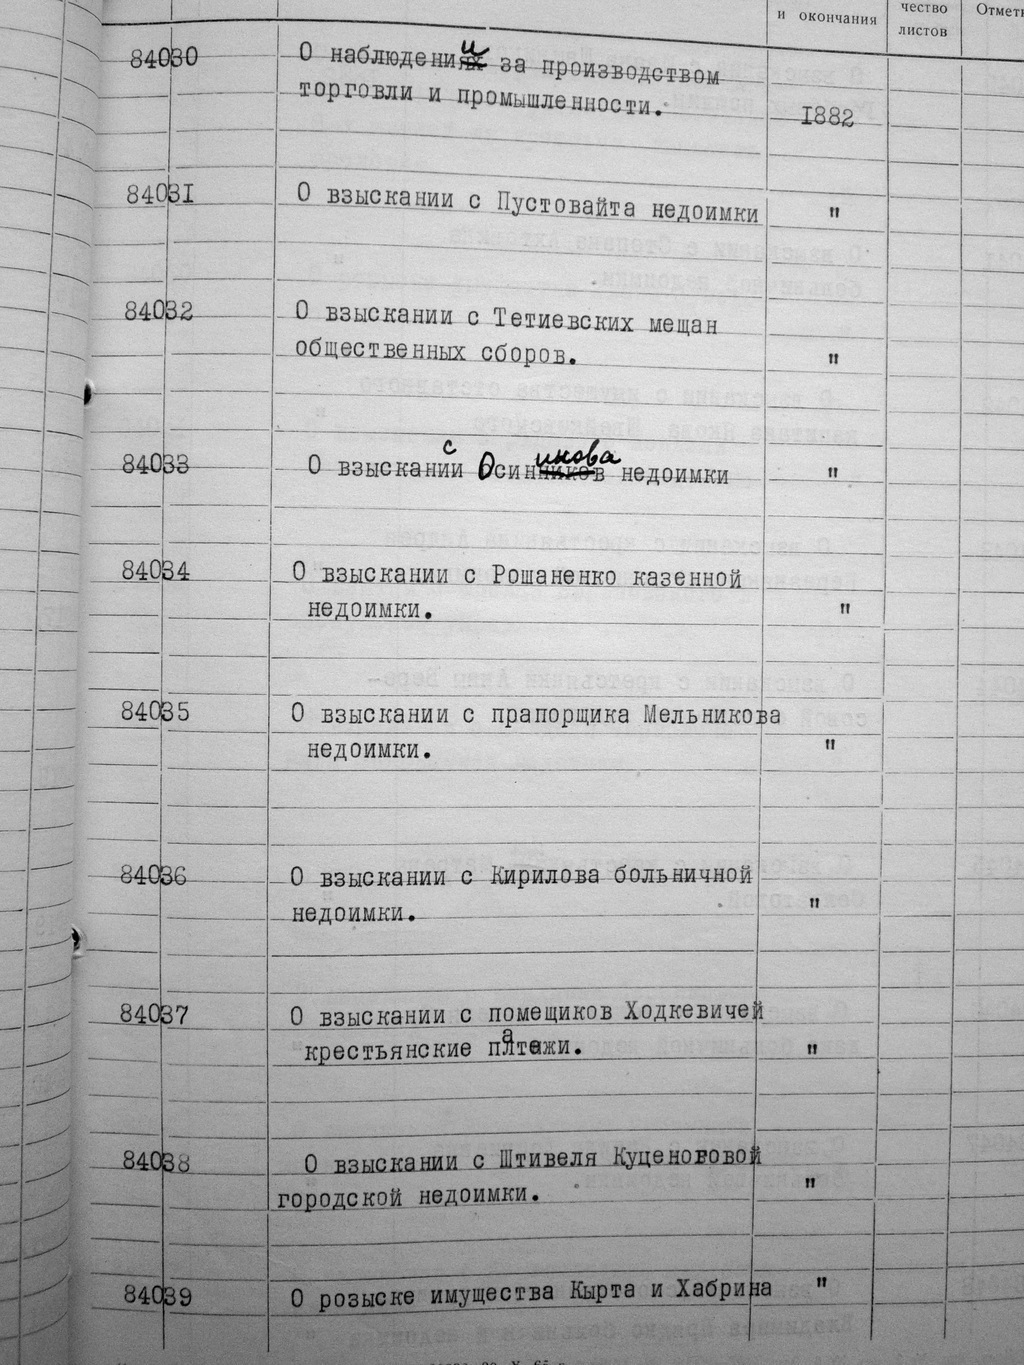 и окончания
чество
листов
Отметк
84030
О наблюдении за производством
торговли и промышленности.
1882
84031
О взыскании с Пустовайта недоимки "
84032
О взыскании с Тетиевских мещан
общественных сборов. "
84033
О взыскании с Осинникова недоимки "
84034
О взыскании с Рошаненко казенной
недоимки. "
84035
О взыскании с прапорщика Мельникова
недоимки. "
84036
О взыскании с Кирилова больничной
недоимки. "
84037
О взыскании с помещиков Ходкевичей
крестьянские платежи. "
84038
О взыскании с Штивеля Куценоговой
городской недоимки. "
84039
О розыске имущества Кырта и Хабрина "